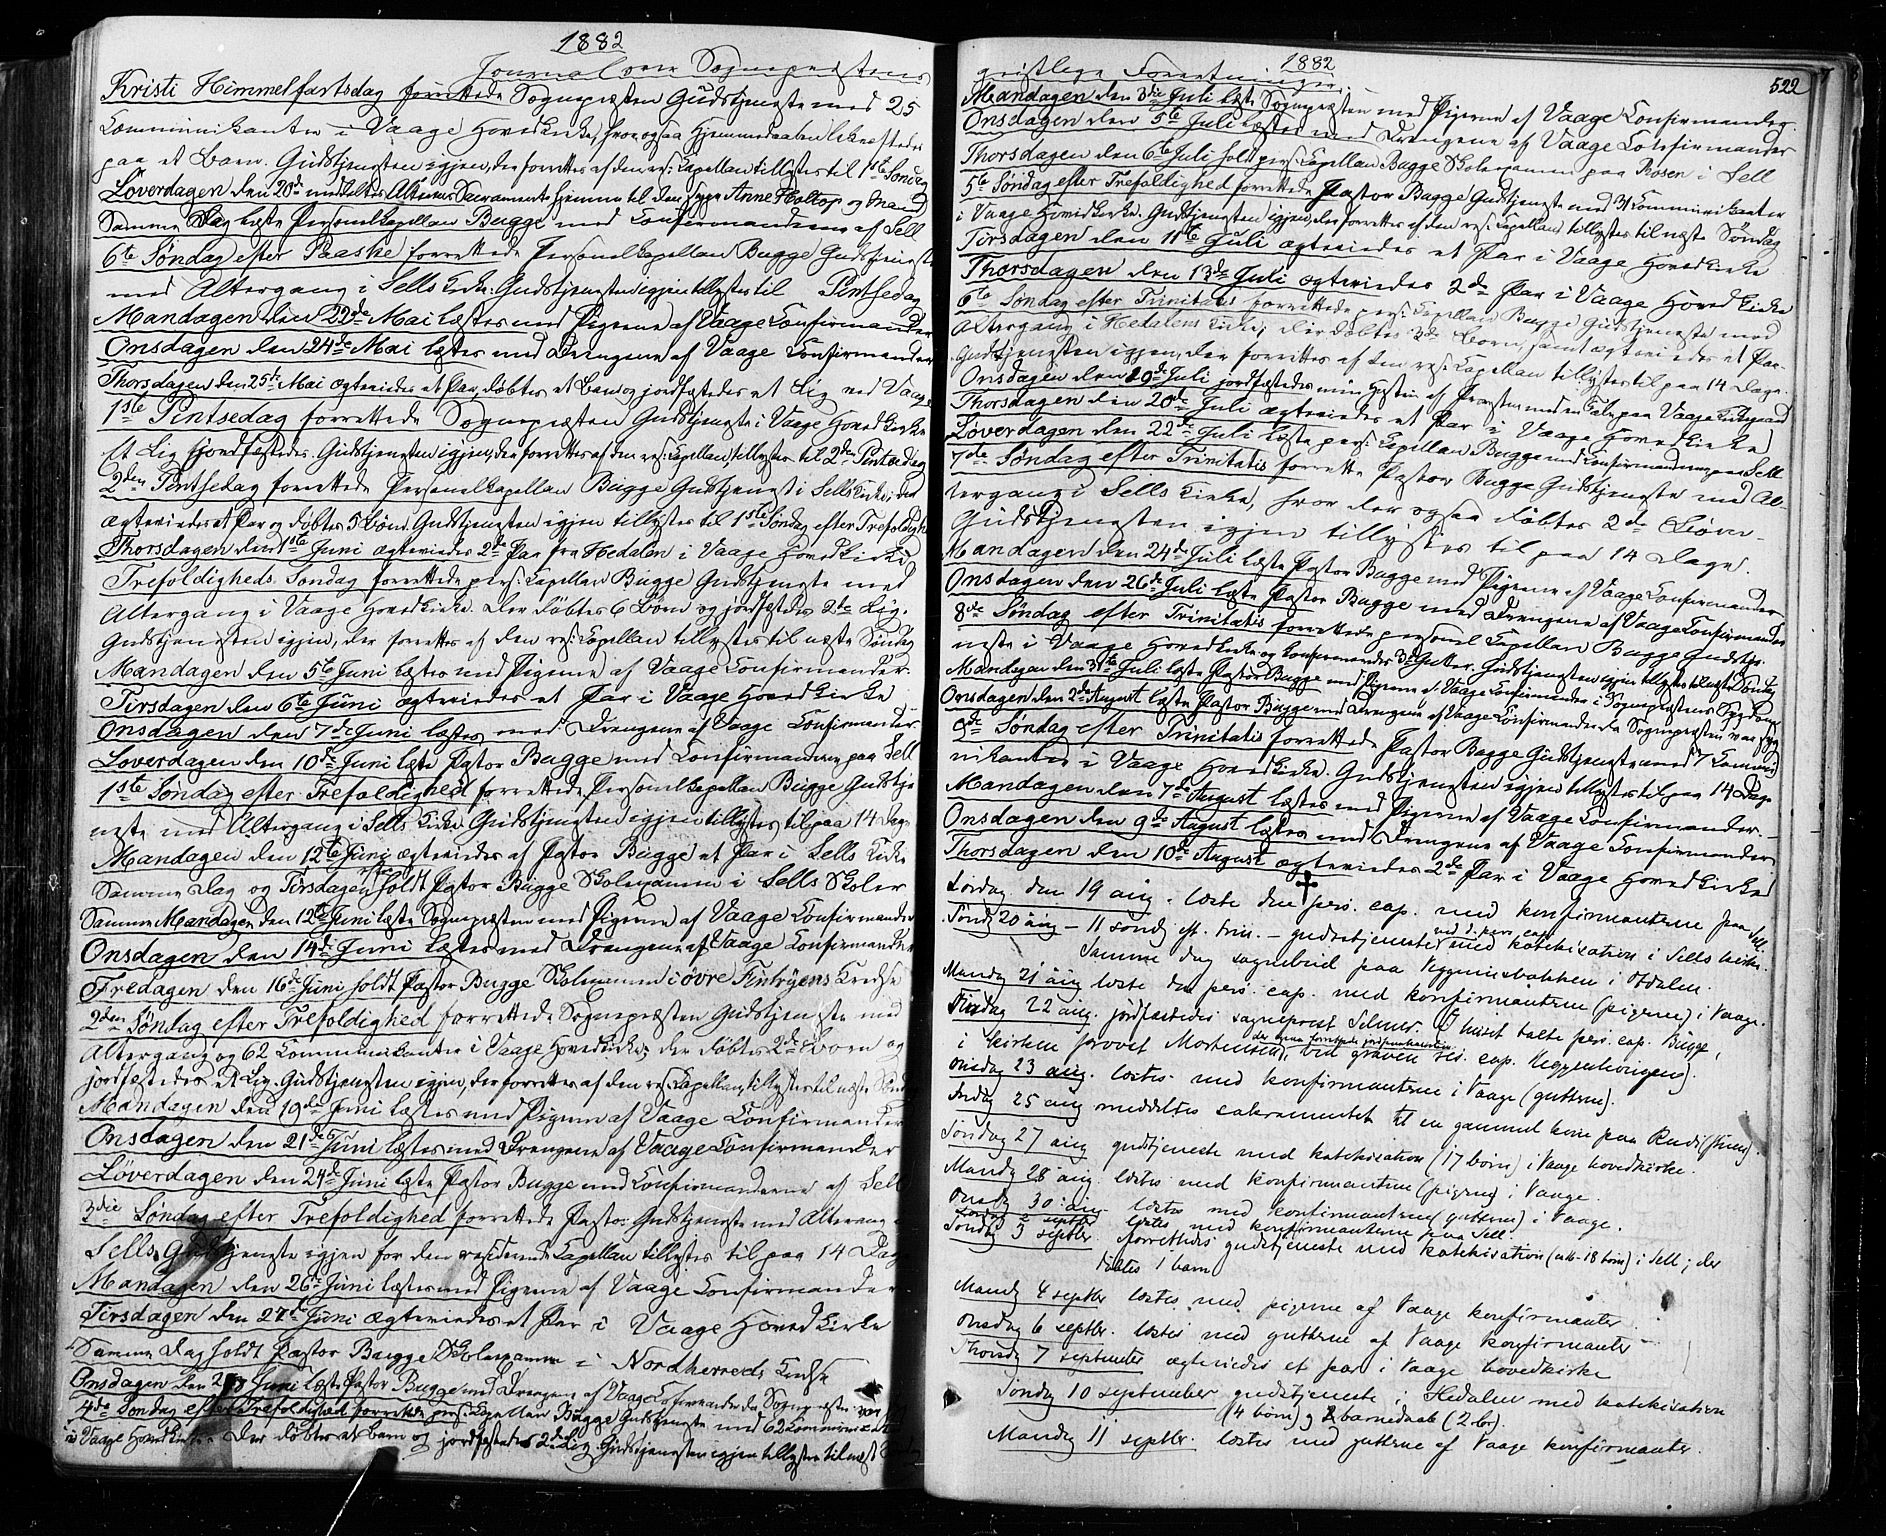 1882
Journal over Sognepræstens
Kristi Himmelfartsdag forrettede Sognepræsten Gudstjeneste med 25
Kommunikanter i Vaage Hovedkirke, hvor ogsaa Hjemmedaaben bekræftedes
paa et Barn. Gudstjenesten igjen, der forrettes af den res: Kapellan tillystes til 1ste Søndag
Løverdagen den 20de meddeltes Alterens Sacramente hjemme til den syge Anne Holtop og Mand
Samme Dag læste Personelkapellan Bugge med Confirmanderne af Sell
6te Søndag efter Paaske forrettede Personelkapellan Bugge Gudstjeneste
med Altergang i Sells Kirke. Gudstjenesten igjen tillystes til Pintsedag
Mandagen den 22de Mai læstes med Pigerne af Vaage Confirmander
Onsdagen den 24de Mai læstes med Drengene af Vaage Confirmander
Thorsdagen den 25te Mai ægteviedes et Par, døbtes et Barn og jordfæstedes et Lig ved Vaage
1ste Pintsedag forrettede Sognepræsten Gudstjeneste i Vaage Hovedkirke
Et Lig jordfæstedes. Gudstjenesten igjen, der forrettes af den res: Kapellan, tillystes til 2den Pintsedag
2den Pintsedag forrettede Personelkapellan Bugge Gudstjeneste i Sells Kirke; der
ægteviedes et Par og døbtes 5 Børn. Gudstjenesten igjen tillystes til 1ste Søndag efter Trefoldigh
Thorsdagen den 1ste Juni ægteviedes 2de Par fra Hedalen i Vaage Hovedkirke
Trefoldigheds Søndag forrettede pers: Capellan Bugge Gudstjeneste med
Altergang i Vaage Hovedkirke. Der døbtes 6 Børn og jordfæstedes 2de Lig.
Gudstjenesten igjen, der forrettes af den res: Capellan tillystes til næste Søndag
Mandagen den 5te Juni læstes med Pigerne af Vaage Confirmander.
Tirsdagen den 6te Juni ægteviedes et Par i Vaage Hovedkirke
Onsdagen den 7de Juni læstes med Drengene af Vaage Confirmander.
Løverdagen den 10de Juni læste Pastor Bugge med Confirmanderne paa Sell
1ste Søndag efter Trefoldighed forrettede Personelkapellan Bugge Gudstje
neste med Altergang i Sells Kirke. Gudstjenesten igjen tillystes til paa 14 Dage
Mandagen den 12te Juni ægteviedes af Pastor Bugge et Par i Sells Kirke
Samme Dag og Tirsdagen holdt Pastor Bugge Skolexamen i Sells Skoler
Samme Mandagen den 12te Juni læste Sognepræsten med Pigerne af Vaage Confirmander
Onsdagen den 14de Juni læstes med Drengene af Vaage Confirmander
Fredagen den 16de Juni holdt Pastor Bugge Skolexamen i øvre Kredse
2den Søndag efter Trefoldighed forrettede Sognepræsten Gudstjeneste med
Altergang og 62 Communikanter i Vaage Hovedkirke; der døbtes 2de Børn og
jordfæstedes et Lig. Gudstjenesten igjen, der forrettes af den res: Kapellan, tillystes til næste Sønd
Mandagen den 19de Juni læstes med Pigerne af Vaage Confirmander
Onsdagen den 21de Juni læstes med Drengene af Vaage Confirmander
Løverdagen den 24de Juni læste Pastor Bugge med Confirmanderne af Sell
3die Søndag efter Trefoldighed forrettede Pastor Gudstjeneste med Altergang i
Sells. Gudstjeneste igjen for den residerende Capellan tillystes til paa 14 Dage
Mandagen den 26te Juni læstes med Pigerne af Vaage Confirmander.
Tirsdagen den 27de Juni ægteviedes et Par i Vaage Hovedkirke
Samme Dag holdt Pastor Bugge Skolexamen i Nordherreds Kredse
Onsdagen den Juni læste Pastor Bugge med Drengene af Vaage Confirmander, da Sognepræsten var
4de Søndag efter Trefoldighed forrettede pers: Capellan Bugge Gudstjeneste med 62 Kommunikanter
i Vaage Hovedkirke. Der døbtes et Barn og jordfæstedes 2de Lig. Gudstjenesten igjen tillystes til næste
1882
522
geistlige Forretninger.
Mandagen den 3die Juli læste Sognepræsten med Pigerne af Vaage Confirmander.
Onsdagen den 5te Juli læstes med Drengene af Vaage Confirmander
Thorsdagen den 6te Juli holdt pers: Capellan Bugge Skolexamen paa Rosten i Sell
5te Søndag efter Trefoldighed forrettede Pastor Bugge Gudstjeneste med 31 Kommunikanter
i Vaage Hovedkirke. Gudstjenesten igjen, der forrettes af den res: Capellan tillystes til næste Søndag
Tirsdagen den 11te Juli ægteviedes et Par i Vaage Hovedkirke
Thorsdagen den 13de Juli ægteviedes 2de Par i Vaage Hovedkirke
6te Søndag efter Trinitatis forrettede pers: Capellan Bugge Gudstjeneste med
Altergang i Hedalens Kirke; der døbtes 3de Børn, samt ægteviedes et Par.
Gudstjenesten igjen, der forrettes af den res: Capellan tillystes til paa 14 Dage.
Onsdagen den 19de Juli jordfæstedes min af Provsten med en Tale paa Vaage Kirkegaard
Thorsdagen den 20de Juli ægteviedes et Par i Vaage Hovedkirke
Løverdagen den 22de Juli læste pers: Capellan Bugge med Confirmanderne paa Sell
7de Søndag efter Trinitatis forrettede Pastor Bugge Gudstjeneste med Al-
tergang i Sells Kirke, hvor der ogsaa døbtes 2de Børn.
Gudstjenesten igjen tillystes til paa 14 Dage.
Mandagen den 24de Juli læste Pastor Bugge med Pigerne af Vaage Confirmander
Onsdagen den 26de Juli læste Pastor Bugge med Drengene af Vaage Confirmander
8de Søndag efter Trinitatis forrettede personel Capellan Bugge Gudstje-
neste i Vaage Hovedkirke og konfirmerede 3de Gutter. Gudstjenesten igjen tillystes til næste Søndag
Mandagen den 31te Juli læste Pastor Bugge med Pigerne af Vaage Confirmander i Sognepræstens Sygdom
Onsdagen den 2de August læste Pastor Bugge med Drengene af Vaage Confirmander da Sognepræsten var syg
9de Søndag efter Trinitatis forrettede Pastor Bugge Gudstjeneste med 7 Kommu-
nikanter i Vaage Hovedkirke. Gudstjenesten igjen tillystes til paa 14 Dage
Mandagen den 7de August læstes med Pigerne af Vaage Confirmander.
Onsdagen den 9de August læstes med Drengene af Vaage Confirmander
Thorsdagen den 10de August ægteviedes 2de Par i Vaage Hovedkirke
Lørdag den 19 aug. læste den pers. cap. med konfirmanterne paa Sell.
Søndg 20 aug – 11 søndg eft. trin. – gudstjeneste ved d. pers. cap. med katekisation i Sells kirke.
Samme dag sognebud paa Veggumsbakken i Ofdalen.
Mandg 21 aug læste den pers. cap. med konfirmanterne (pigerne) i Vaage.
Tirsdag 22 aug. jordfæstedes sogneprest Selmer. I huset talte pers. cap. Bugge,
i kirken provst Mortensen, der forrettede jordpaakastelsen, ved graven res. cap. .
Onsdag 23 aug. læstes med konfirmanterne i Vaage (gutterne).
Fredag 25 aug meddeltes sakramentet til en gammel kone paa Rudi ().
Søndag 27 aug gudstjeneste med katekisation (17 børn) i Vaage hovedkirke.
Mandg 28 aug. læstes med konfirmanterne (pigerne) i Vaage.
Onsdg 30 aug. læstes med konfirmanterne (gutterne) i Vaage.
Lørdag 2 septbr læstes med konfirmanterne paa Sell.
Søndg 3 septbr. forrettedes gudstjeneste med katekisation (18 børn) i Sell; der
døbtes 1 barn
Mandg 4 septbr læstes med pigerne af Vaage konfirmanter.
Onsdag 6 septbr. læstes med gutterne af Vaage konfirmanter
Thorsdg 7 september ægteviedes et par i Vaage hovedkirke
Søndag 10 september gudstjeneste i Hedalen med katekisation
(4 børn) og barnedaab (2 br).
Mandag 11 septbr. læstes med gutterne af Vaage konfirmanter.